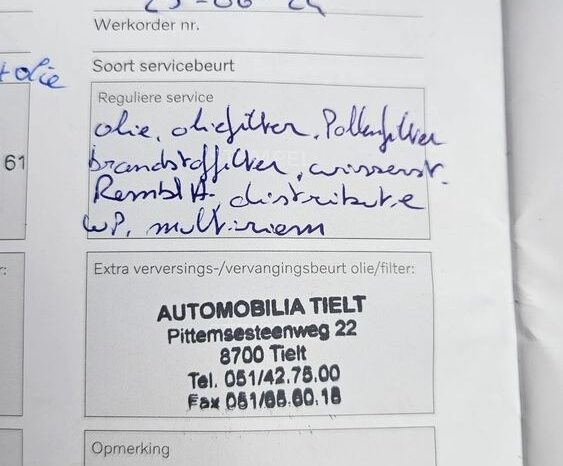 25-06-24
Werkorder nr.
Soort servicebeurt
olie
Reguliere service
olie, oliefilter, Pollenfilter
61
brandstoffilter, wisserst.
Rembl A, distributie
WP, multiriem
r:
Extra verversings-/vervangingsbeurt olie/filter:
AUTOMOBILIA TIELT
Pittemsesteenweg 22
8700 Tielt
Tel. 051/42.75.00
Fax 051/65.60.18
Opmerking